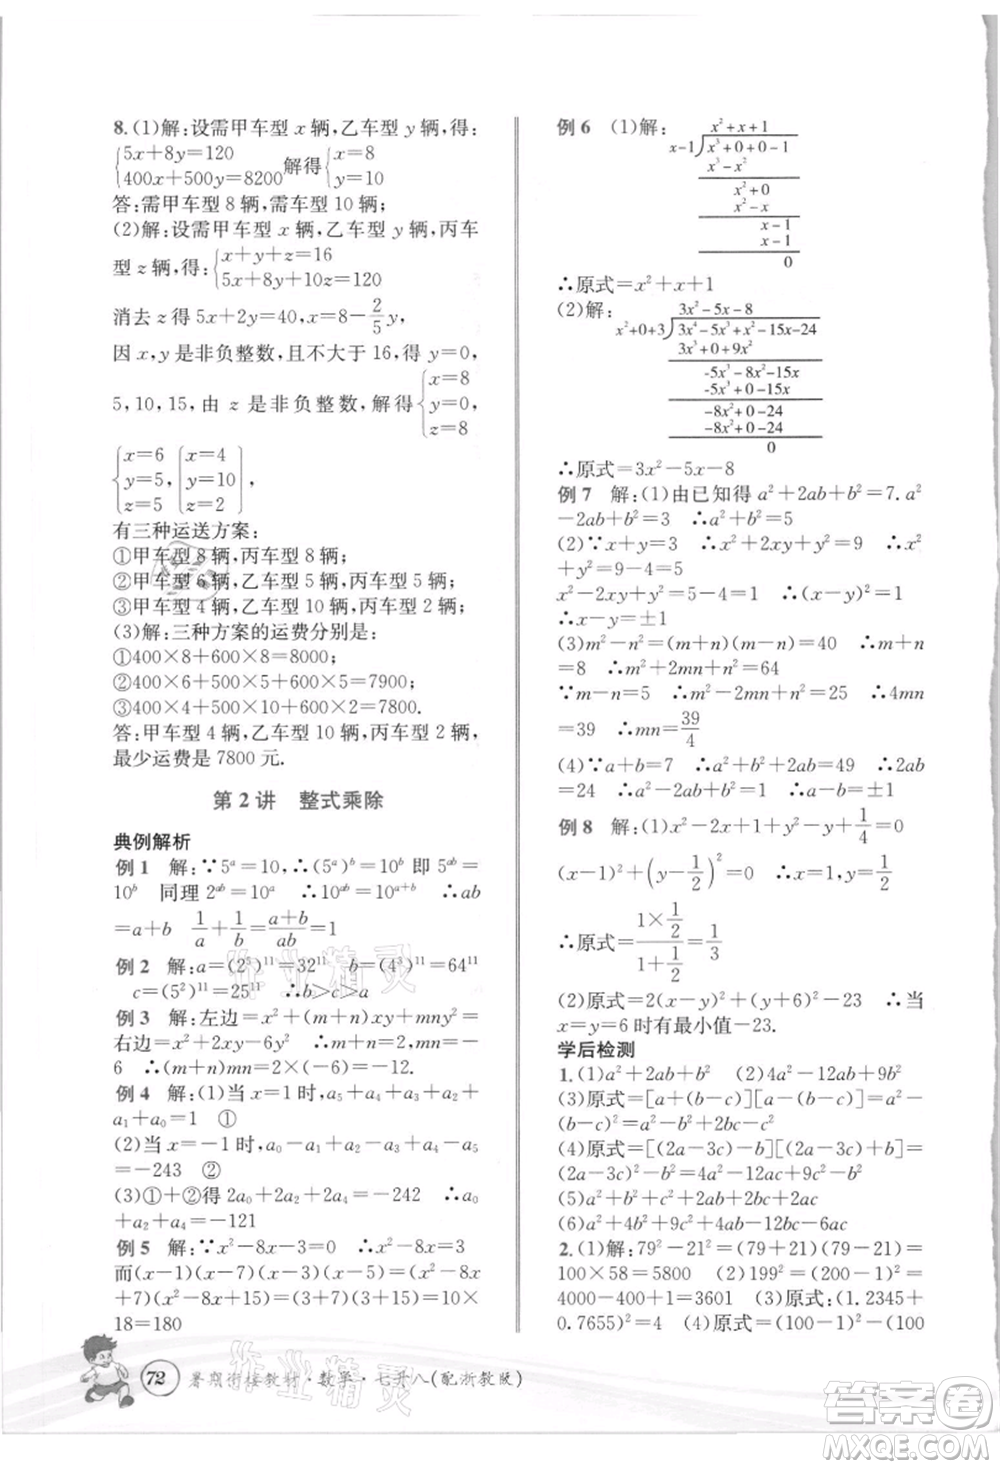 8.(1)解:设需甲车型 x 辆,乙车型 y 辆,得:
{5x+8y=120
400x+500y=8200 解得{x=8
y=10
答:需甲车型 8 辆,需车型 10 辆;
(2)解:设需甲车型 x 辆,乙车型 y 辆,丙车
型 z 辆,得:{x+y+z=16
5x+8y+10z=120
消去 z 得 5x+2y=40,x=8-2/5 y,
因 x,y 是非负整数,且不大于 16,得 y=0,
5,10,15,由 z 是非负整数,解得{x=8
y=0,
z=8
{x=6
y=5,
z=5 {x=4
y=10,
z=2
有三种运送方案:
①甲车型 8 辆,丙车型 8 辆;
②甲车型 6 辆,乙车型 5 辆,丙车型 5 辆;
③甲车型 4 辆,乙车型 10 辆,丙车型 2 辆;
(3)解:三种方案的运费分别是:
①400×8+600×8=8000;
②400×6+500×5+600×5=7900;
③400×4+500×10+600×2=7800.
答:甲车型 4 辆,乙车型 10 辆,丙车型 2 辆,
最少运费是 7800 元.
第 2 讲 整式乘除
典例解析
例 1 解:∵5ᵃ=10,∴(5ᵃ)ᵇ=10ᵇ 即 5ᵃᵇ=
10ᵇ 同理 2ᵃᵇ=10ᵃ ∴10ᵃᵇ=10ᵃ⁺ᵇ ∴ab
=a+b 1/a+1/b=(a+b)/ab=1
例 2 解:a=(2⁵)¹¹=32¹¹ b=(4³)¹¹=64¹¹
c=(5²)¹¹=25¹¹ ∴b>c>a
例 3 解:左边=x²+(m+n)xy+mny²=
右边=x²+2xy-6y² ∴m+n=2,mn=-
6 ∴(m+n)mn=2×(-6)=-12.
例 4 解:(1)当 x=1 时,a₅+a₄+a₃+a₂+
a₁+a₀=1 ①
(2)当 x=-1 时,a₀-a₁+a₂-a₃+a₄-a₅
=-243 ②
(3)①+②得 2a₀+2a₂+a₄=-242 ∴a₀
+a₂+a₄=-121
例 5 解:∵x²-8x-3=0 ∴x²-8x=3
而(x-1)(x-3)(x-5)(x-7)=(x²-8x+
7)(x²-8x+15)=(3+7)(3+15)=10×
18=180
72 暑期衔接教材·数学·七升八(配浙教版)
例 6 (1)解: x²+x+1
x-1 x³+0+0-1
x³-x²
x²+0
x²-x
x-1
x-1
0
∴原式=x²+x+1
(2)解: 3x²-5x-8
x²+0+3 3x⁴-5x³+x²-15x-24
3x⁴+0+9x²
-5x³-8x²-15x
-5x³+0-15x
-8x²+0-24
-8x²+0-24
0
∴原式=3x²-5x-8
例 7 解:(1)由已知得 a²+2ab+b²=7.a²
-2ab+b²=3 ∴a²+b²=5
(2)∵x+y=3 ∴x²+2xy+y²=9 ∴x²
+y²=9-4=5
x²-2xy+y²=5-4=1 ∴(x-y)²=1
∴x-y=±1
(3)m²-n²=(m+n)(m-n)=40 ∴m+n
=8 ∴m²+2mn+n²=64
∵m-n=5 ∴m²-2mn+n²=25 ∴4mn
=39 ∴mn=39/4
(4)∵a+b=7 ∴a²+b²+2ab=49 ∴a²
+b²-2ab=25 ∴a-b=±5
例 8 解:(1)x²-2x+1+y²-y+1/4=0
(x-1)²+(y-1/2)²=0 ∴x=1,y=1/2
∴原式=(1×1/2)/(1+1/2)=1/3
(2)原式=2(x-6)²+(x-y)²-23 ∴当
x=y=6 时有最小值-23.
学后检测
1.(1)a²+2ab+b² (2)4a²-12ab+9b²
(3)原式=[a+(b-c)][a-(b-c)]=a²-
(b-c)²=a²-b²+2bc-c²
(4)原式=[(2a-3c)-b][(2a-3c)+b]=
(2a-3c)²-b²=4a²-12ac+9c²-b²
(5)a²+b²+c²-2ab-2bc+2ac
(6)4a²+b²+c²-4ab-2bc+4ac
2.(1)解:79²-21²=(79+21)(79-21)=
100×58=5800 (2)199²=(200-1)²=
4000-400+1=3601 (3)原式:(1.2345+
0.7655)²=4 (4)原式=(100-1)²-(100
作业精灵
作业精灵
答案卷
MXQE.COM